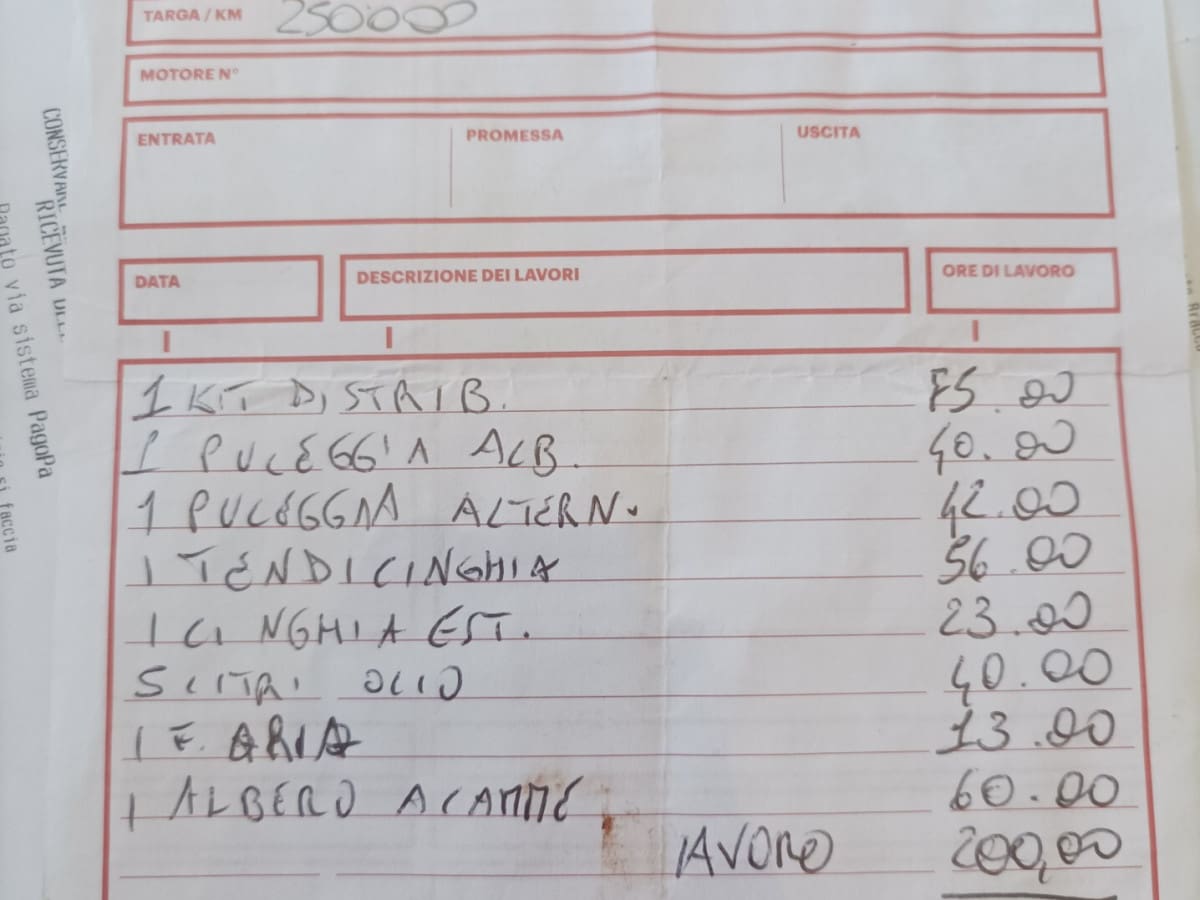 TARGA / KM 250000
MOTORE N°
ENTRATA PROMESSA USCITA
DATA DESCRIZIONE DEI LAVORI ORE DI LAVORO
1 KIT DISTRIB. 75.00
1 PULEGGIA ALB. 40.00
1 PULEGGIA ALTERN. 42.00
1 TENDICINGHIA 56.00
1 CINGHIA EST. 23.00
5 LITRI OLIO 40.00
1 F. ARIA 13.00
1 ALBERO ACAMME 60.00
LAVORO 200,00
CONSERVARE
RICEVUTA
Pagato via sistema PagoPa
si faccia